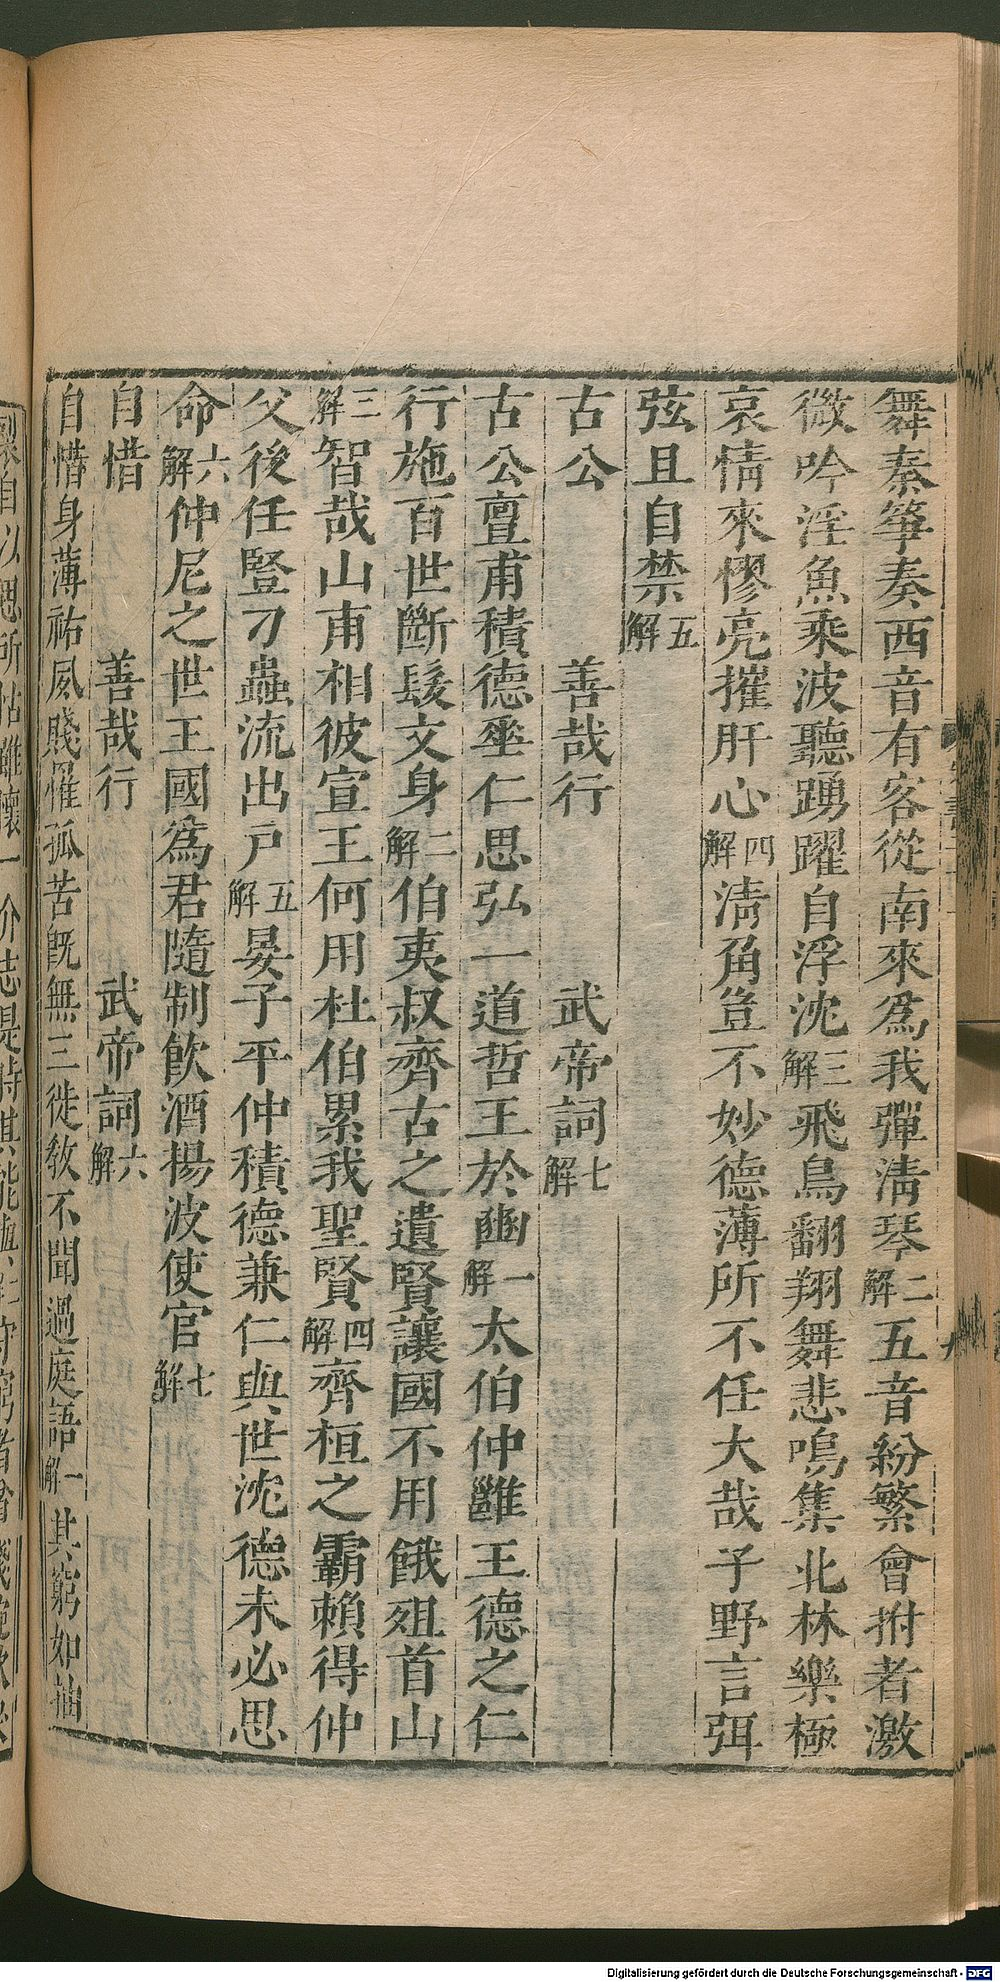 舞秦筝奏西音有客從南來爲我彈清琴二解五音紛繁會拊者激
微吟淫魚乘波聽踴躍自浮沈三解飛鳥翻翔舞悲鳴集北林樂極
哀情來憀亮摧肝心四解清角豈不妙德薄所不任大哉子野言弭
弦且自禁五解
古公 善哉行 武帝詞七解
古公亶甫積德垂仁思弘一道哲王於豳一解太伯仲雍王德之仁
行施百世斷髮文身二解伯夷叔齊古之遺賢讓國不用餓殂首山
三解智哉山甫相彼宣王何用杜伯累我聖賢四解齊桓之霸賴得仲
父後任豎刁蟲流出戸五解晏子平仲積德兼仁與世沈德未必思
命六解仲尼之世王國爲君隨制飮酒揚波使官七解
自惜 善哉行 武帝詞六解
自惜身薄祜夙賤罹孤苦旣無三徙敎不聞過庭語一解其窮如抽
Digitalisierung gefördert durch die Deutsche Forschungsgemeinschaft - DFG